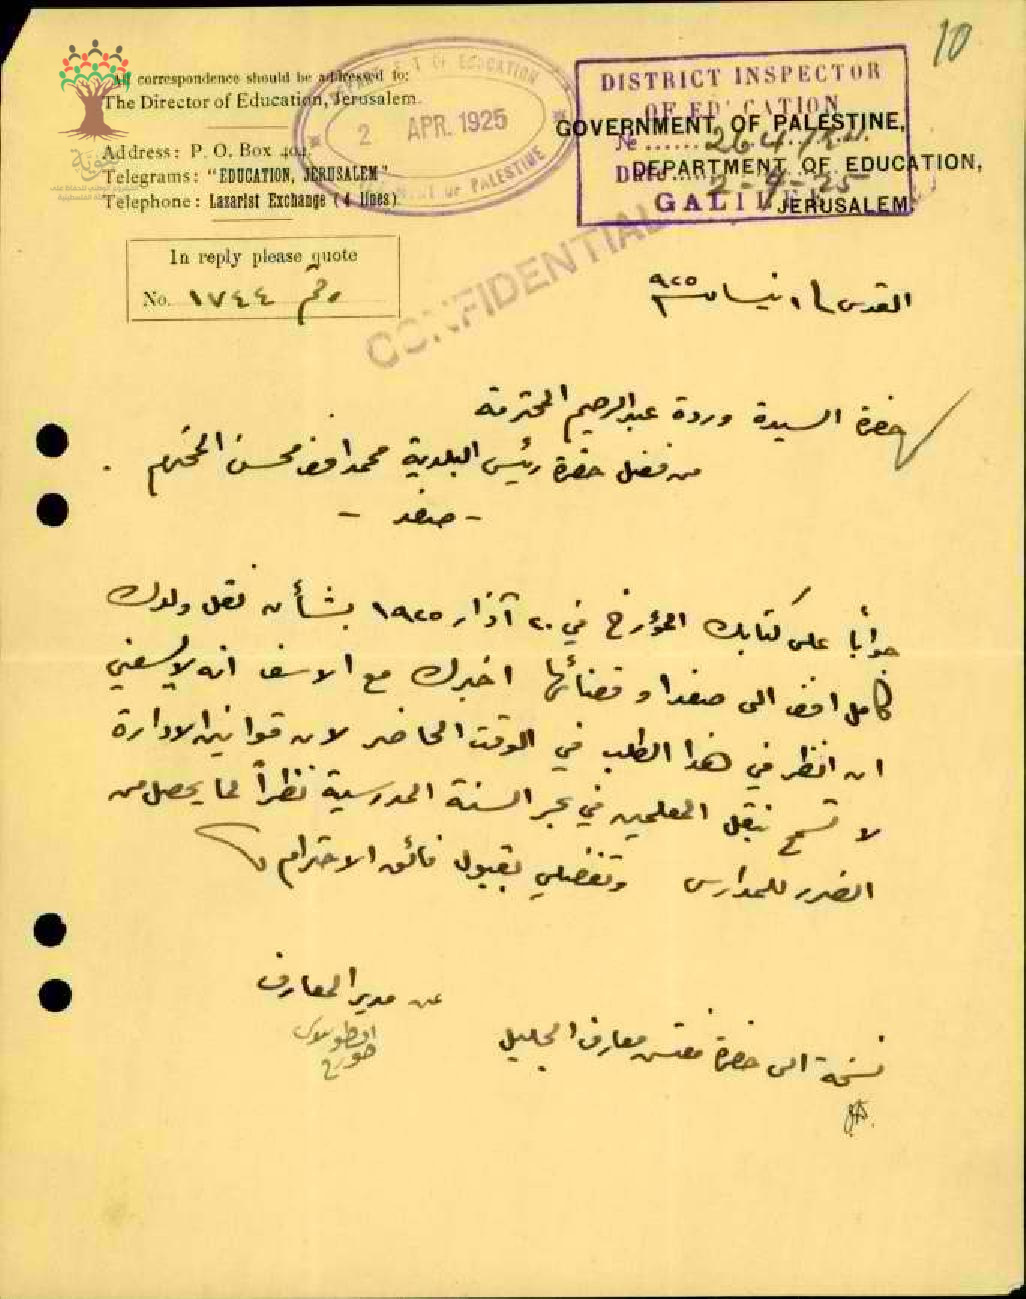 10
All correspondence should be addressed to:
The Director of Education, Jerusalem.
Address: P. O. Box 404.
Telegrams: "EDUCATION, JERUSALEM"
Telephone: Lazarist Exchange (4 lines)
2 APR. 1925
DISTRICT INSPECTOR
OF EDUCATION
No ...... 264/
Date ... 2-4-25
GALILEE
GOVERNMENT OF PALESTINE,
DEPARTMENT OF EDUCATION,
JERUSALEM
In reply please quote
No. رقم ١٧٤٤
CONFIDENTIAL
القدس في ١ نيسان سنة ٩٢٥
حضرة السيدة وردة عبدالرحيم المحترمة
من فضل حضرة رئيس البلدية محمد افندي محسن المحترم .
- صفد -
جواباً على كتابك المؤرخ في ٢٠ آذار ١٩٢٥ بشأن نقل ولدك
كامل افندي الى صفد او قضائها اخبرك مع الاسف انه لا يسعني
ان انظر في هذا الطلب في الوقت الحاضر لان قوانين الادارة
لا تسمح بنقل المعلمين في بحر السنة المدرسية نظراً لما يحصل من
الضرر للمدارس وتفضلي بقبول فائق الاحترام
عن مدير المعارف
نسخة الى حضرة مفتش معارف الجليل